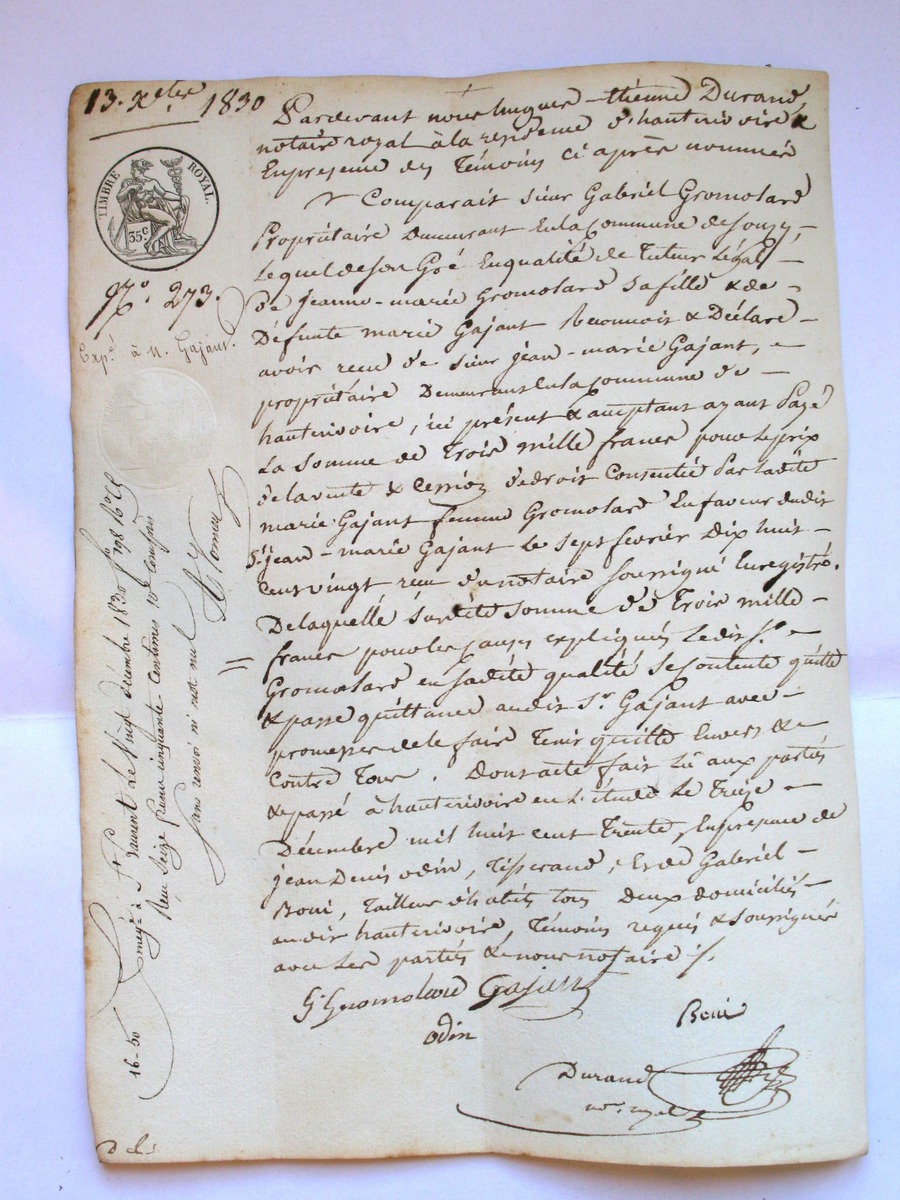 13. Xbre 1830
TIMBRE ROYAL.
35 c
N.o 273.
Exp.e à M. Gajant.
Pardevant nous hugues-étienne Durand,
notaire royal à la residence d'hauterivoire &
En presence des Témoins ci après nommés
Comparait Sieur Gabriel Gromolard
Propriétaire Demeurant En la Commune de Souzy,
Lequel de son Gré En qualité de Tuteur Légal
De jeanne-marie Gromolard Sa fille & de
Défunte marie Gajant Reconnoit & Déclare
avoir recu de Sieur jean-marie Gajant,
propriétaire Demeurant En la Commune de
hauterivoire, ici présent & acceptant ayant Payé
La Somme de Trois mille francs pour le prix
de la vente & Cession de droit Consentie Par ladite
marie Gajant femme Gromolard En faveur dudit
S.r jean-marie Gajant Le Sept février Dix huit
Cent vingt recu du notaire Soussigné Enregistré.
De laquelle Susdite Somme de Trois mille
francs pour les causes expliqués Ledit S.r
Gromolard en Sadite qualité Se Contente quitte
& passe quittance audit S.r Gajant avec
promesse de le faire Tenir quitte Envers &
Contre Tous. Dont acte fait Lû aux parties
& passé à hauterivoire en L'étude Le Treize
Décembre mil huit cent Trente, En presence de
jean Denis odin, Tisserand, & de Gabriel
Boui, Tailleur d'habits tous Deux domiciliés
audit hauterivoire, Témoins requis & Soussignés
avec Les parties & nous notaire ./.
G Gromolard Gajant
odin
Boui
Durand
no.re royal
Enreg.é à S.t Laurent Le vingt décembre 1830 f.o 198
Reçu Seize francs cinquante Centimes 10.e Compris
Sans renvoi ni mot nul
16-50